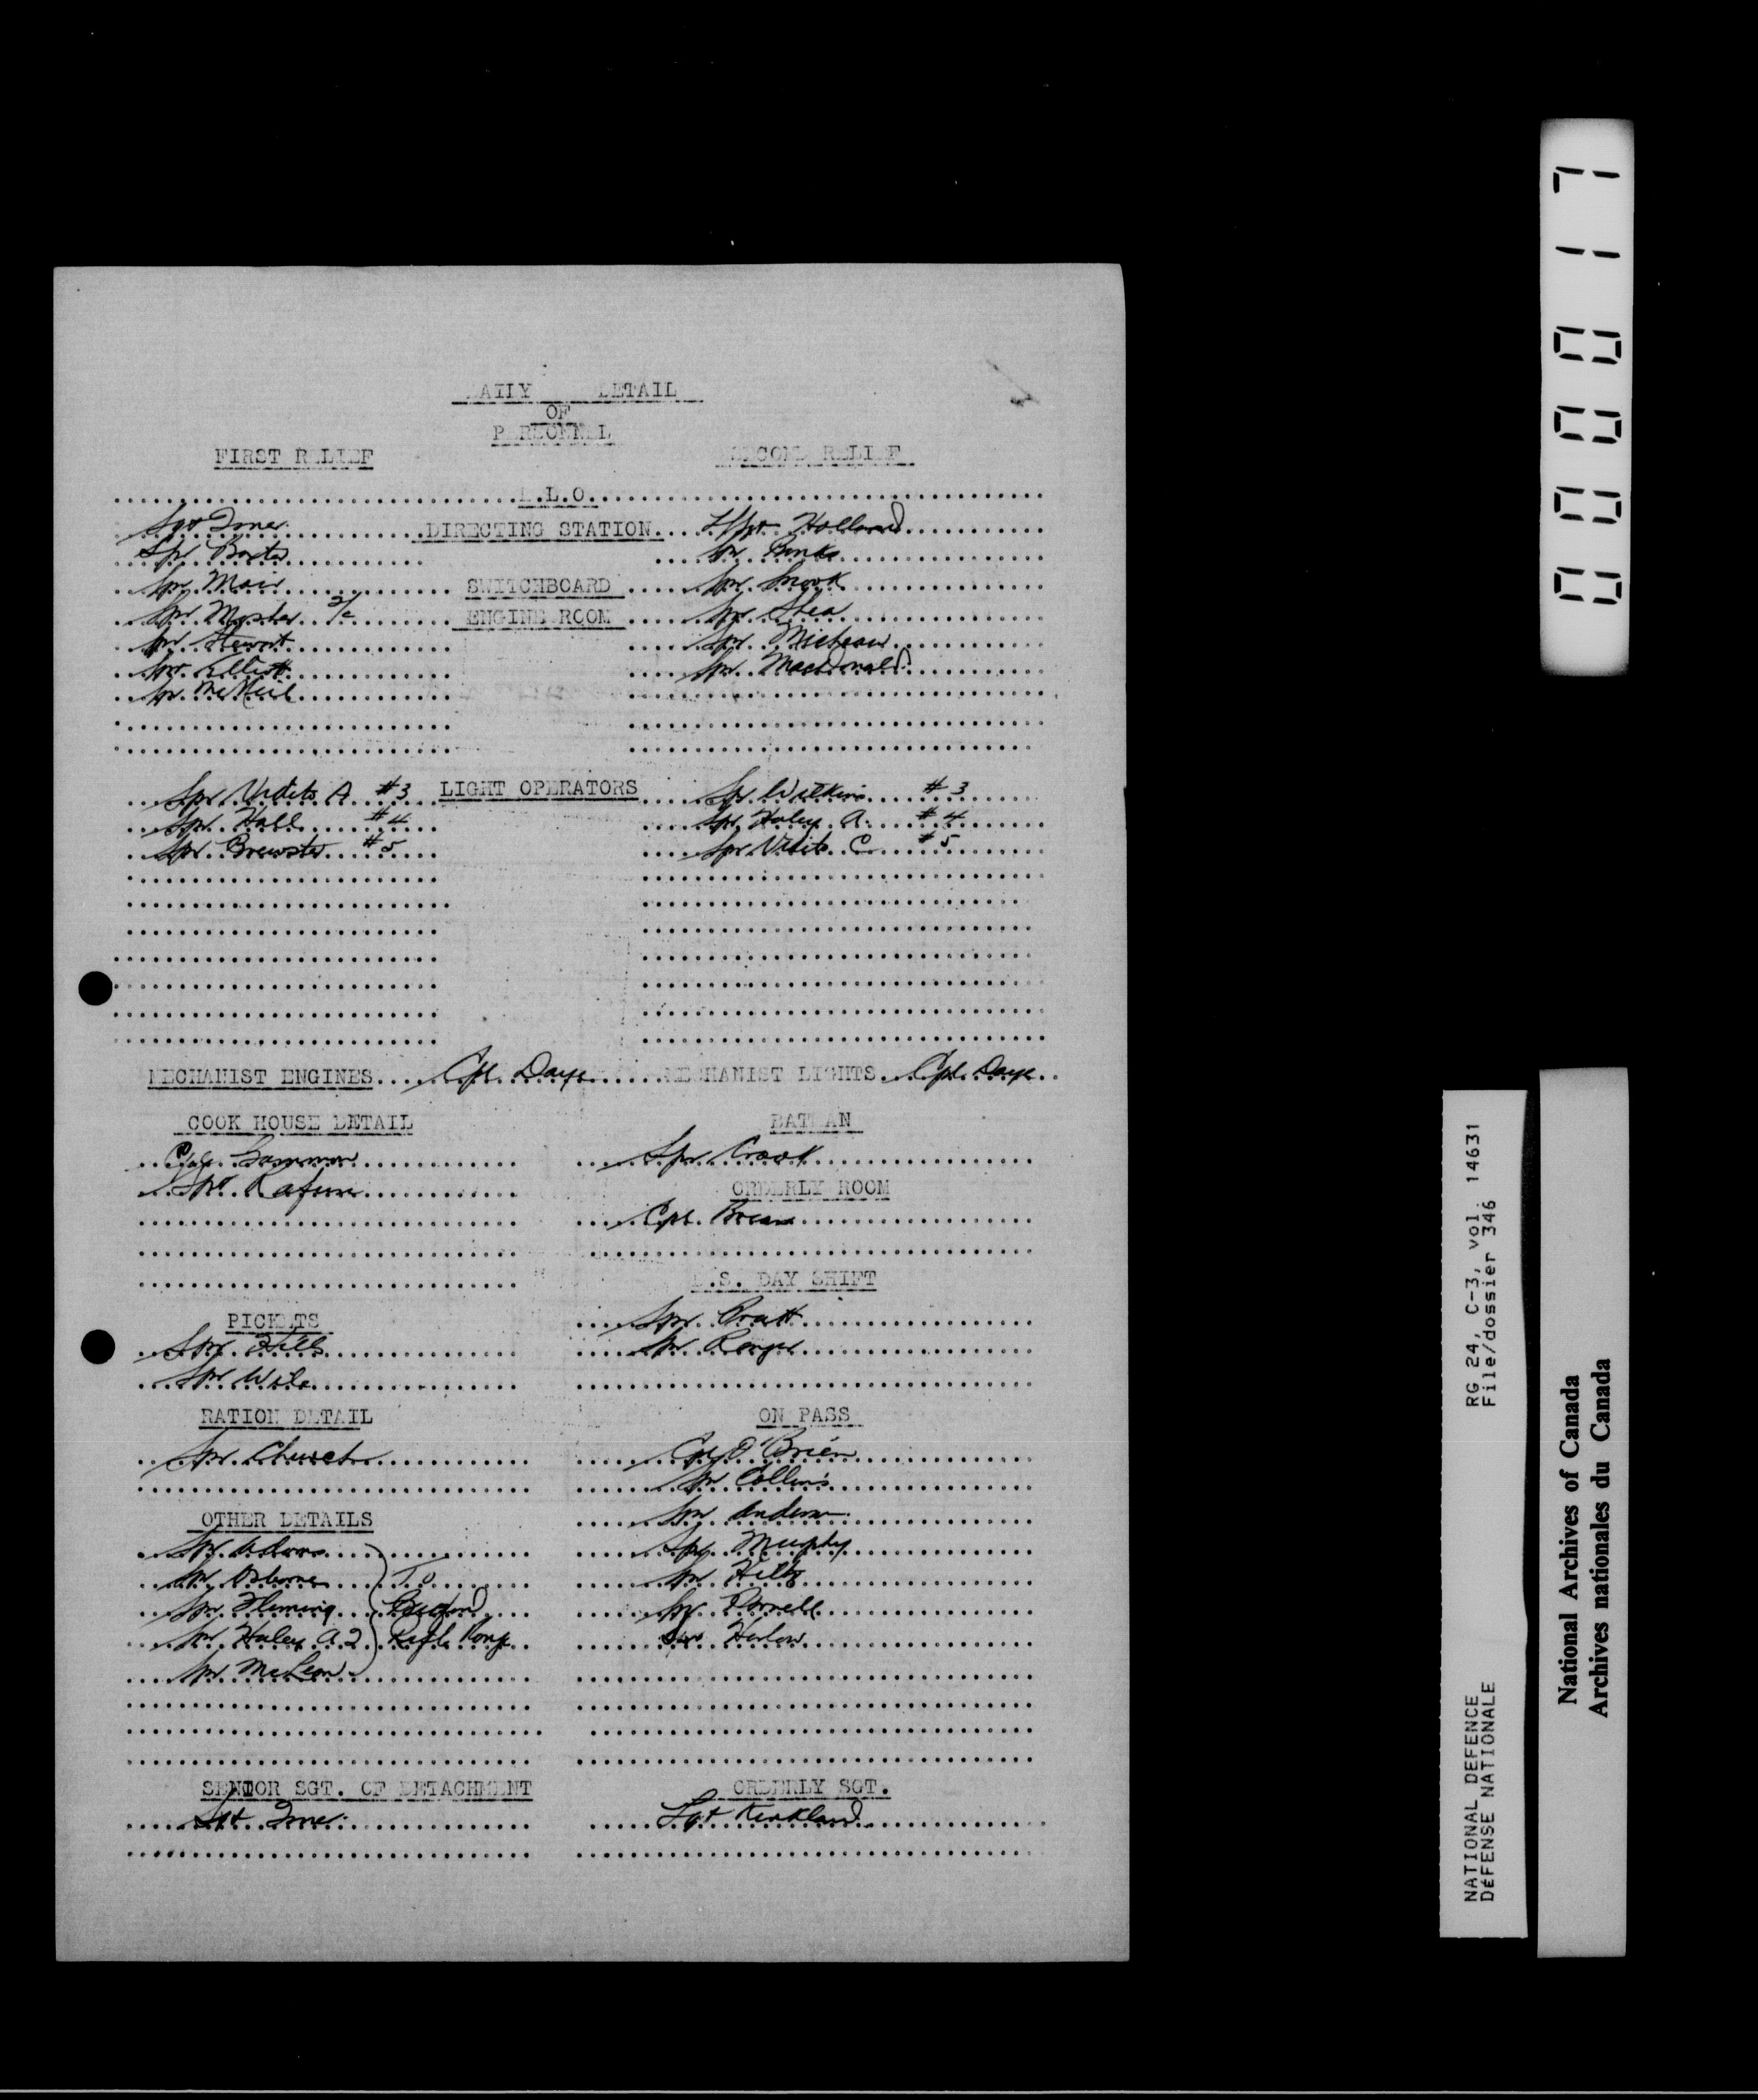 DAILY DETAIL
OF
PERSONNEL
FIRST RELIEF SECOND RELIEF
E.L.O.
Sgt DIRECTING STATION L/Sgt Holland
Spr Baxter Spr Banks
Spr Mair SWITCHBOARD Spr Snook
Spr Mosher ENGINE ROOM Spr Shea
Spr Stewart Spr Micheau
Spr Elliott Spr MacDonald
Spr McNeil
Spr Vidito A #3 LIGHT OPERATORS Spr Wilkins #3
Spr Hall #4 Spr Haley A. #4
Spr Brewster #5 Spr Vidito C #5
MECHANIST ENGINES Cpl Daye MECHANIST LIGHTS Cpl Daye
COOK HOUSE DETAIL BATMAN
Cpl Spr Crook
Spr Rafuse ORDERLY ROOM
Cpl.
E.S. DAY SHIFT
PICKETS Spr Pratt
Spr Hills Spr
Spr Wile
RATION DETAIL ON PASS
Spr Church Cpl O'Brien
Spr Collins
OTHER DETAILS Spr
Spr Adams Spr Murphy
Spr Osborne To Spr Hiltz
Spr Fleming Bedford Spr Parnell
Spr Haley A.2 Rifle Range Spr Harlow
Spr McLean
SENIOR SGT. OF DETACHMENT ORDERLY SGT.
Sgt Sgt Kirkland
000017
RG 24, C-3, vol. 14631
File/dossier 346
NATIONAL DEFENCE
DÉFENSE NATIONALE
National Archives of Canada
Archives nationales du Canada